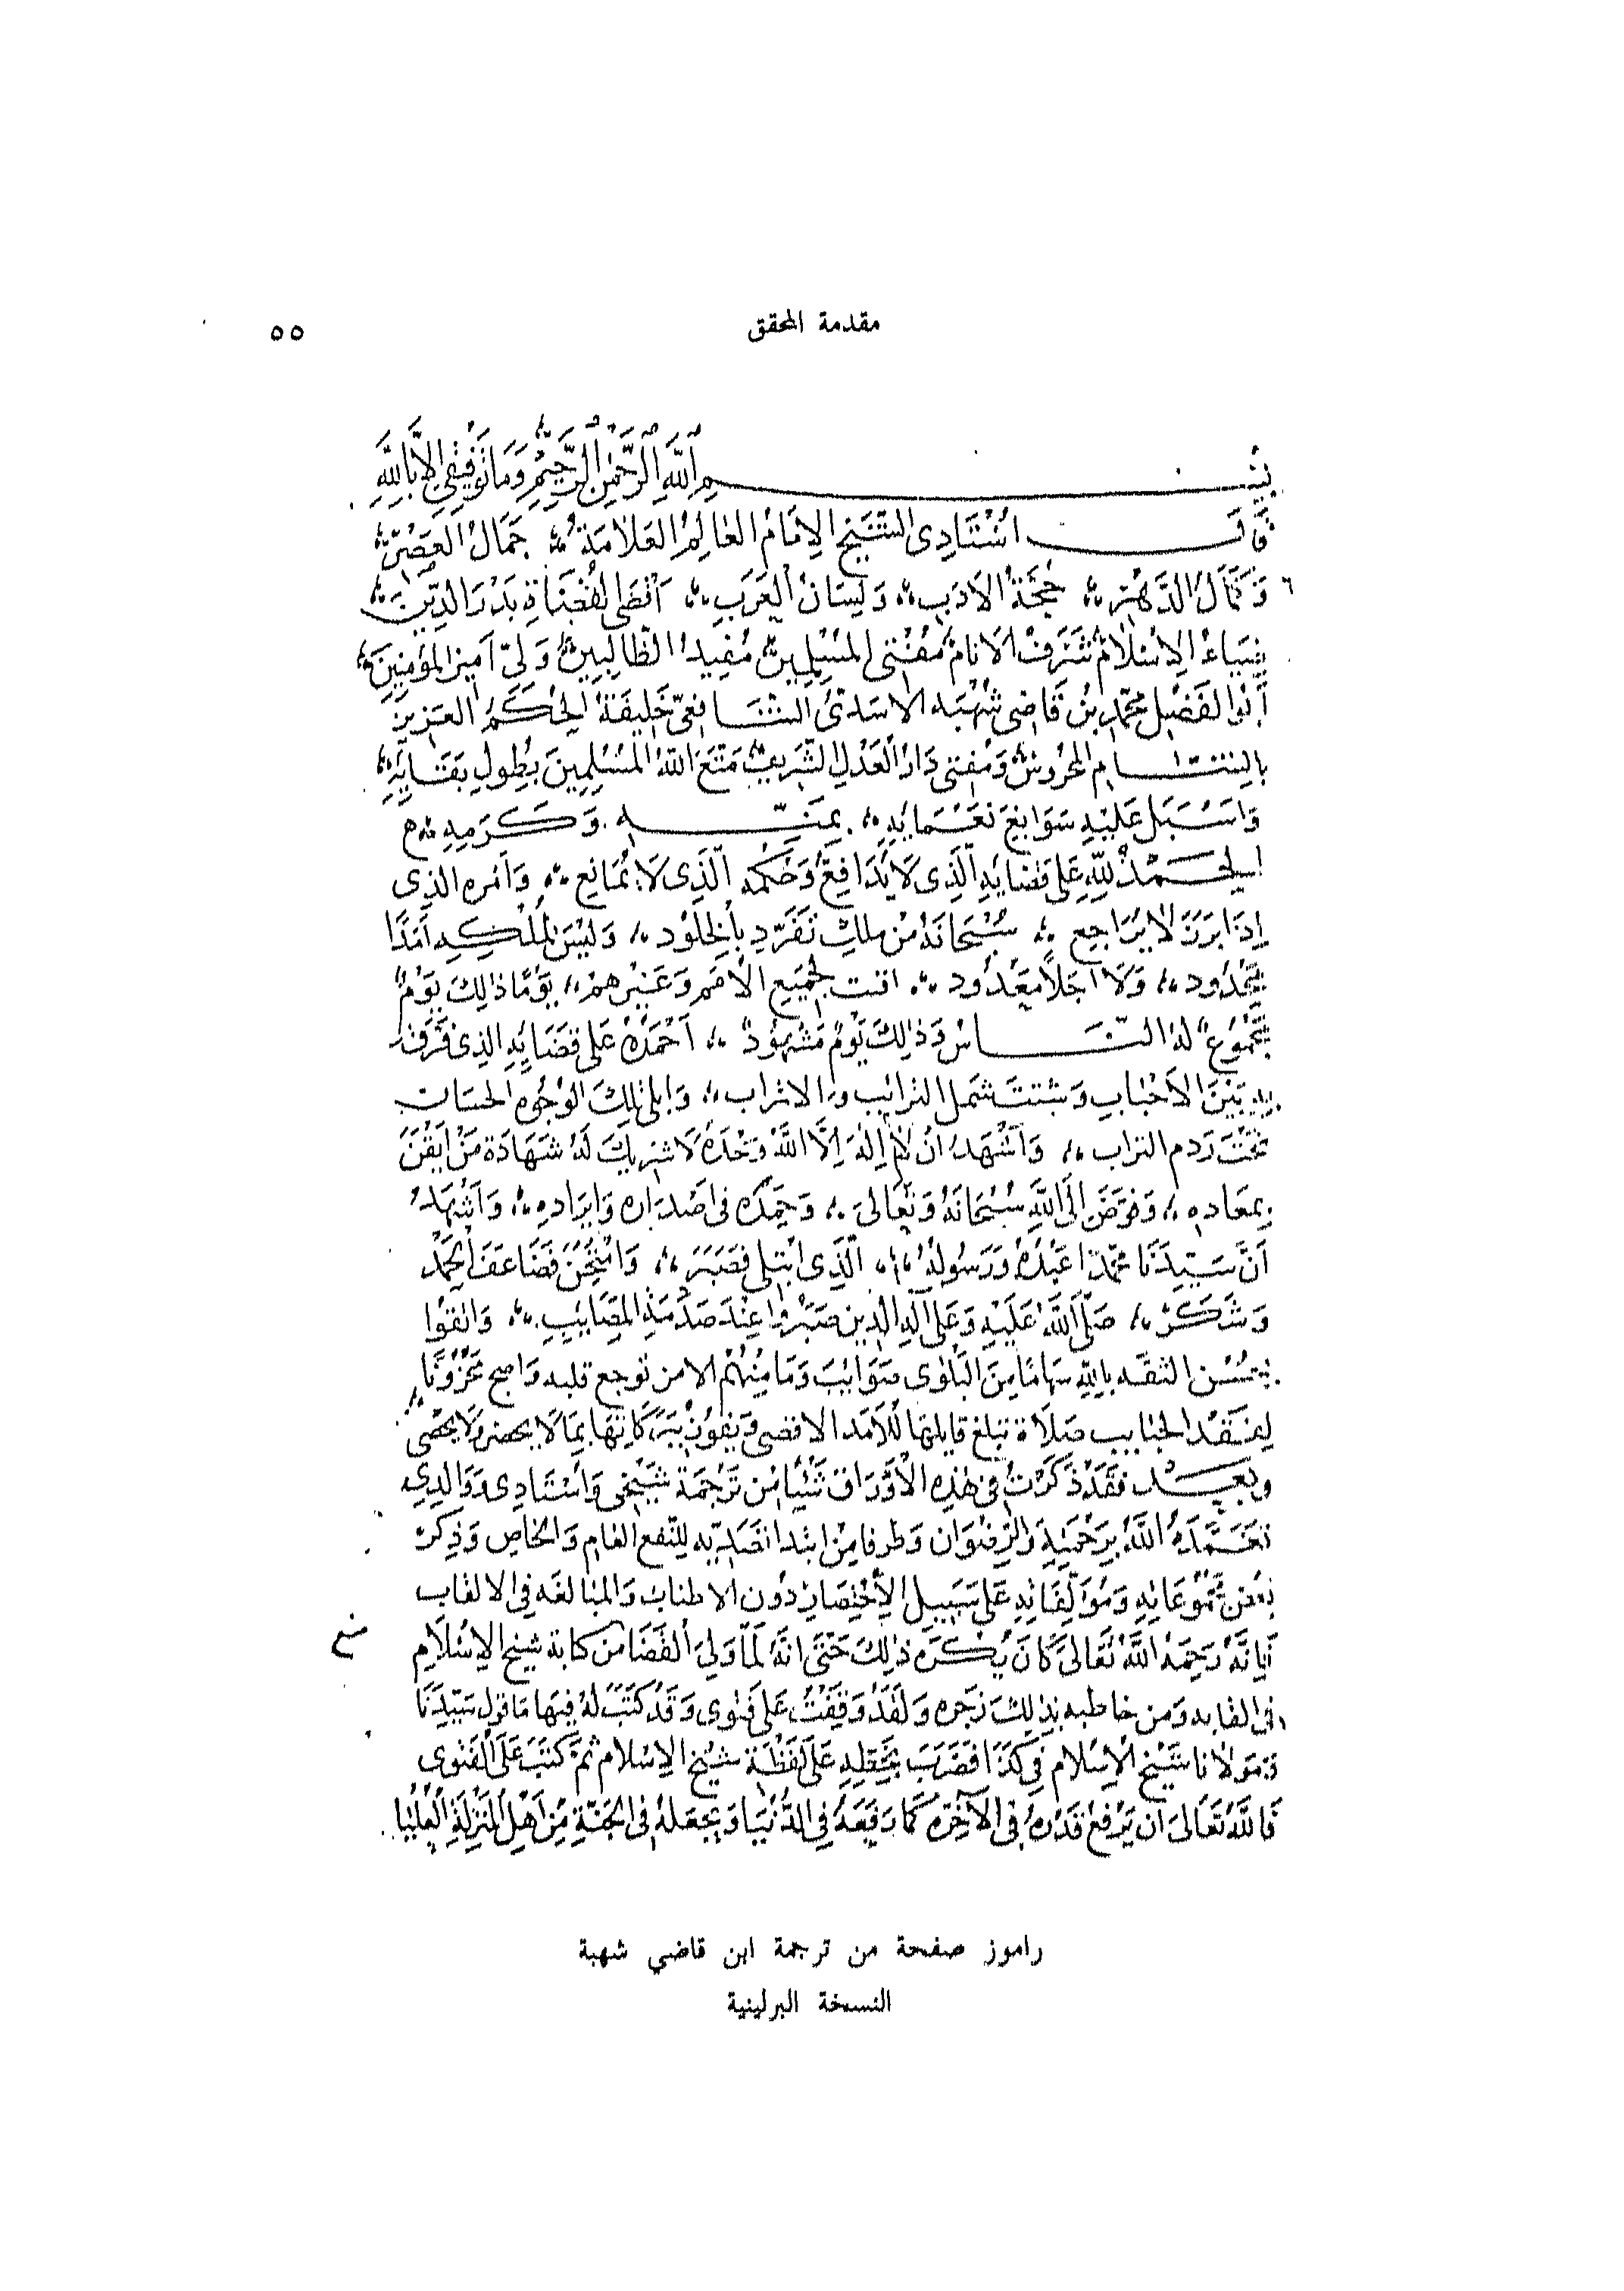 مقدمة المحقق
٥٥
بِسْمِ اللَّهِ الرَّحْمٰنِ الرَّحِيمِ وَمَا تَوْفِيقِي إِلَّا بِاللَّهِ
قَالَ اُسْتَادِى الشَّيخ الاِمَامُ العَالِمُ العَلَامَةُ جَمَالُ العَصْرِ
وَكَمَالُ الدَّهْرِ حُجَّةُ الأَدَبِ وَلِسَانُ العَرَبِ اَقضَى القُضَاةِ بَدْرَ الدِّينِ
ضِيَاءُ الاِسْلَامِ شَرَفُ الأنَامِ مُفْتِى المُسْلِمِينَ مُفِيدُ الطَّالِبِينَ وَلِىّ اَمِيرِ المُؤمِنِينَ
اَبُوا الفَضْلِ مُحَمَّد بن قَاضِى شُهْبَه الاَسَدِىُّ الشَّافِعىّ خَلِيفَةُ الحُكْمِ العَزِيزِ
بِالشَّامِ المَحْرُوسِ وَمُفتى دَارِ العَدْلِ الشَّرِيفِ مَتَّعَ اللَّهُ المُسْلِمِينَ بِطُولِ بَقَائِهِ
وَاَسْبَلَ عَلَيْهِ سَوَابِغَ نَعْمَائِهِ بِمَنِّهِ وَكَرَمِهِ
الحَمْدُ لِلَّهِ عَلَى قَضَائِهِ الَّذِى لَا يُدَافَعُ وَحُكْمِه الَّذِى لَا يُمَانع وَاَمْرِه الذِى
اِذَا بَرَزَ لَا يُرَاجع سُبْحَانَهُ مِنْ مَلِكٍ تَفَرَّد بِالخُلُود وَلَيْسَ لِمُلْكِهِ اَمَدًا
مَحْدُود وَلَا اَجَلًا مَعْدُود لجَمِيع الاُمَم وَغَيْرهم يَوْمًا ذٰلِكَ يَوْمٌ
مَجْمُوعٌ لَهُ النَّاسُ وَذٰلِكَ يَوْمٌ مَشْهُودٌ اَحْمَدُهُ عَلَى قَضَائِهِ الذِى فَرَّقَ
بِهِ بَيْنَ الاَحْبَابِ وَشتَّتَ شَمل الترَائِب وَالاتراب وَابلى تِلكَ الوُجُوه الحسَان
تَحْتَ رَدمِ التراب وَاَشْهَدُ اَنْ لَا اِلٰهَ اِلَّا اللَّهُ وَحْدَهُ لَا شَرِيكَ لَهُ شَهَادَة مَنْ اَيْقَنَ
بِمَعَادِه وَفَوَّضَ اِلَى اللَّهِ سُبْحَانَهُ وَتَعَالىَ وَحَمِدَه فى اصْدَارِه وَايرَادِه وَاَشْهَدُ
اَنَّ سَيِّدَنَا مُحَمَّدًا عَبْدُهُ وَرَسُولُهُ الَّذِى ابْتُلِى فَصَبَرَ وَامْتُحِنَ فَضَاعَفَ الحَمْدَ
وَشَكَرَ صَلَّى اللَّهُ عَلَيْهِ وَعَلَى آلِهِ الَّذِينَ صَبَرُوا عِنْدَ صَدْمَةِ المَصَائِبِ وَاتقوا
بحُسْن الثقه بِاللَّهِ سِهَامًا مِنَ البَلْوَى صَوَائِبَ وَمَا مِنْهُمْ الا من توجع قلبه وَاصبح مَحْزُونًا
لِفَقْدِ الحَبَايب صَلَاةً تبلغ قايلهَا الاَمَد الاقصى وَيَفُوزُ بِبَرَكَاتِهَا بِمَا لَا يحصَر وَلَا يُحْصَى
وبَعد فَقَدْ ذَكَرْتُ فِى هٰذِهِ الأَوْرَاق شَيْئًا مِن تَرْجَمَة شَيْخِى وَاُسْتَادِى وَوَالِدِي
تَغَمَّدَهُ اللَّهُ بِرَحْمَتِهِ وَالرِّضْوَان وَطرفا مِنْ ابتدا تصَدِّيه لِلنَّفع العَام وَالخاص وَذِكر
بَعض مَجْمُوعَاتِهِ وَمُؤَلَّفَاتِهِ عَلَى سَبِيلِ الاِخْتِصَارِ دُون الاطناب وَالمبَالغه فِى الالقاب
فَاِنَّهُ رَحِمَهُ اللَّهُ تَعَالىَ كَانَ يَكْرَه ذٰلِكَ حَتَّى انَّهُ لَمَّا وَلِىَ القَضَا مَنع كتابة شيخ الاِسْلَامِ
فى القابه وَمن خاطبه بِذٰلِكَ زَجَره وَلَقَدْ وَقَفْتُ عَلَى فَتوى وَقَدْ كَتَبَ لَهُ فِيهَا مَا قول سَيِّدنَا
وَمَوْلَانا شَيْخ الاِسْلَام فِى كَذَا فَضَرَبَ بِقَلَمِهِ عَلَى لَفْظَة شيْخ الاِسْلَام ثمَّ كَتَبَ عَلَى الفَتوى
فَاللَّهُ تَعَالىَ ان يَرْفَع قَدْرَهُ فى الآخِرَه كَمَا رَفَعَهُ فِى الدُّنْيَا وَيجعَلهُ فى الجَنَّةِ مِنْ اَهْلِ المَنْزِلَةِ العُلْيَا
راموز صفحة من ترجمة ابن قاضي شهبة
النسخة البرلينية